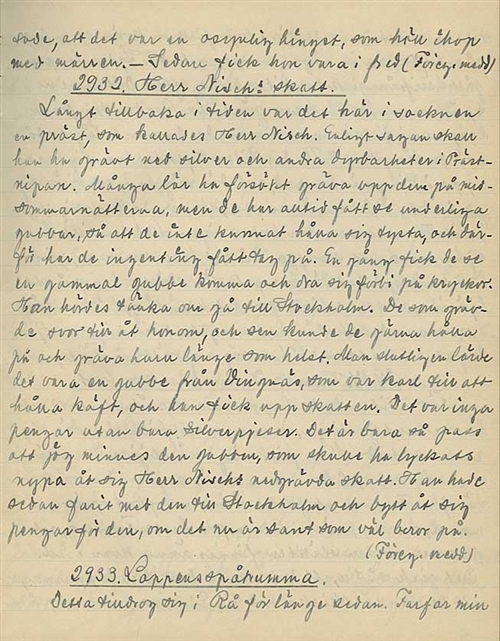 sade, att det var en osynlig hingst, som höll ihop
med märren. — Sedan fick hon vara i fred (Föreg. medd)
2932. Herr Nisch's skatt.
Långt tillbaka i tiden var det här i socknen
en präst, som kallades Herr Nisch. Enligt sagan skall
han ha grävt ned silver och andra dyrbarheter i Präst-
nipan. Många lär ha försökt gräva upp dem på mid-
sommarnätterna, men de har alltid fått se underliga
gubbar, så att de inte kunnat hålla sig tysta, och där-
för har de ingenting fått tag på. En gång fick de se
en gammal gubbe komma och dra sig förbi på kryckor.
Han hördes tänka om gå till Stockholm. De som gräv-
de svor till åt honom, och sen kunde de gärna hålla
på och gräva huru länge som helst. Man slutligen lärde
det vara en gubbe från Vingnäs, som var karl till att
hålla käft, och han fick upp skatten. Det var inga
pengar utan bara silverpjeser. Det är bara så pass
att jag minnes den gubben, som skulle ha lyckats
nypa åt sig Herr Nisch's nedgrävda skatt. Han hade
sedan farit med den till Stockholm och bytt åt sig
pengar för den, om det nu är sant som väl beror på.
(Föreg. medd)
2933. Lappens spåtrumma.
Detta tilldrog sig i Rå för länge sedan. Farfar min